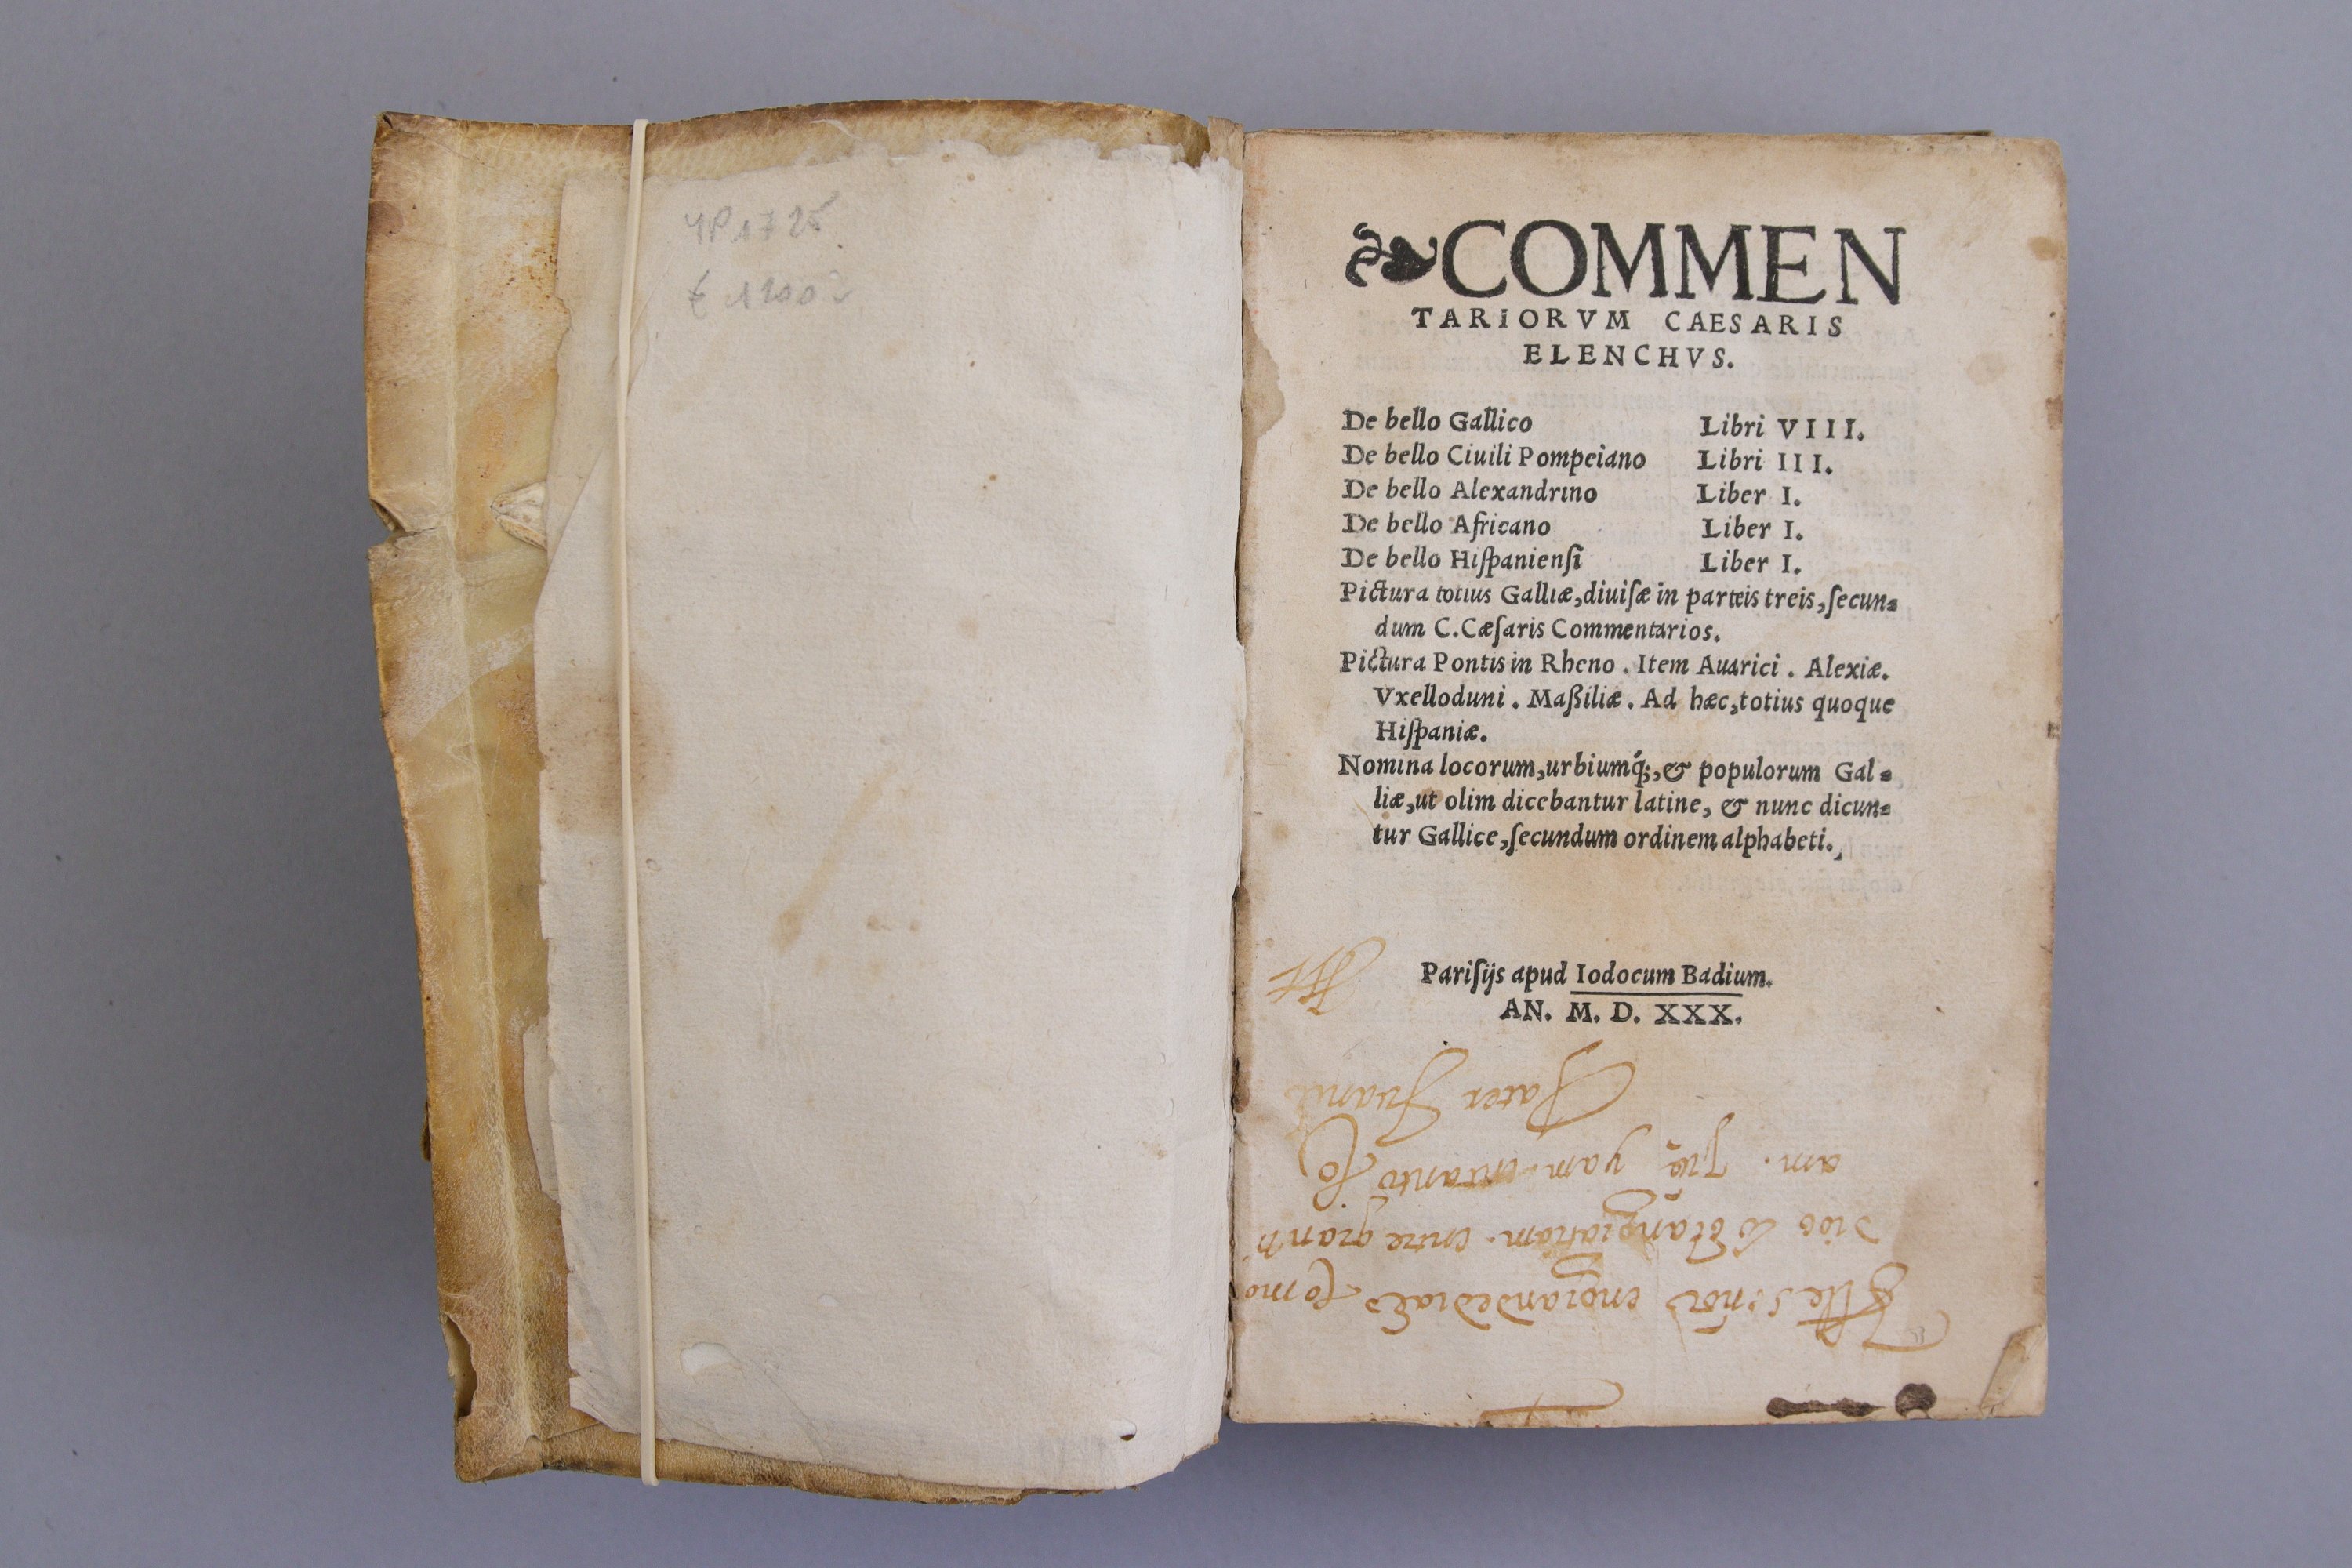 COMMEN
TARIORVM CAESARIS
ELENCHVS.
De bello Gallico Libri VIII.
De bello Ciuili Pompeiano Libri III.
De bello Alexandrino Liber I.
De bello Africano Liber I.
De bello Hiſpanienſi Liber I.
Pictura totius Galliæ, diuiſæ in parteis treis, ſecun=
dum C. Cæſaris Commentarios.
Pictura Pontis in Rheno. Item Auarici. Alexiæ.
Vxelloduni. Maßiliæ. Ad hæc, totius quoque
Hiſpaniæ.
Nomina locorum, urbiumq́;, & populorum Gal=
liæ, ut olim dicebantur latine, & nunc dicun=
tur Gallice, ſecundum ordinem alphabeti.
Pariſijs apud Iodocum Badium.
AN. M. D. XXX.
Pater